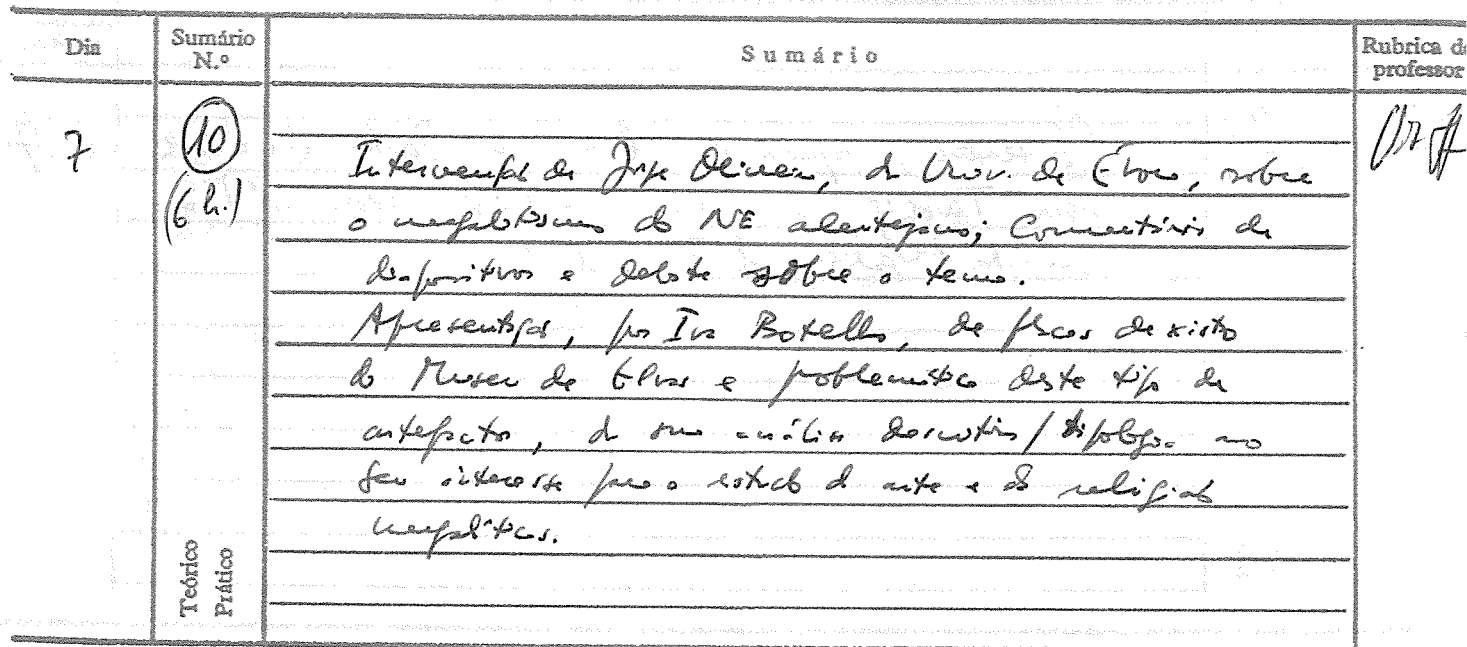 Dia
Sumário N.º
Sumário
Rubrica do professor
7
10
(6 h.)
Intervenção de Jorge Oliveira, da Univ. de Évora, sobre
o megalitismo do NE alentejano; Comentário de
diapositivos e debate sobre o tema.
Apresentação, por Iva Botelho, de placas de xisto
do Museu de Elvas e problemática deste tipo de
artefacto, da sua análise descritiva/tipológica ao
seu interesse para o estudo da arte e da religião
megalíticas.
Teórico
Prático